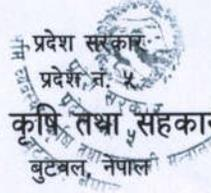 प्रदेश सरकार
प्रदेश नं. ५
कृषि तथा सहकार
बुटवल, नेपाल